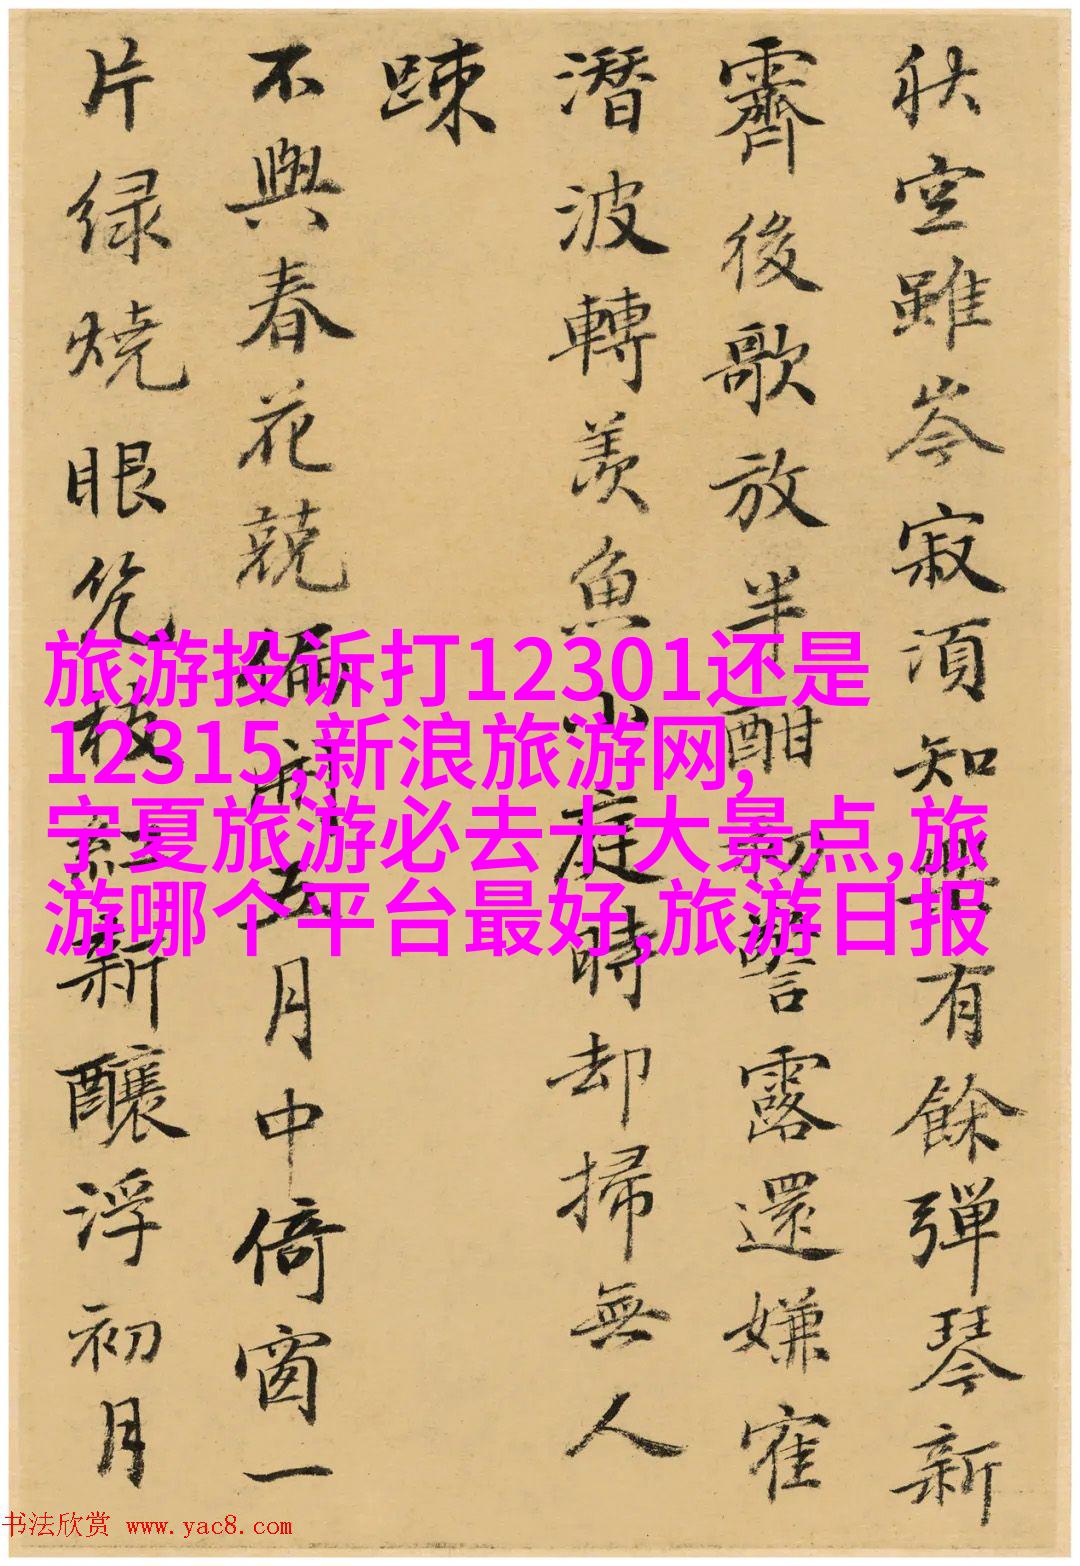 秋空雖岑寂須知
有餘彈琴新
霽後歌放半酣
露還嫌寉
潛波轉羨魚小庭時却掃無人
踈
不與春花競
五月中倚窗一
片緑燒眼
新釀浮初月
旅游投诉打12301还是
12315,新浪旅游网,
宁夏旅游必去十大景点,旅
游哪个平台最好,旅游日报
书法欣赏 www.yac8.com